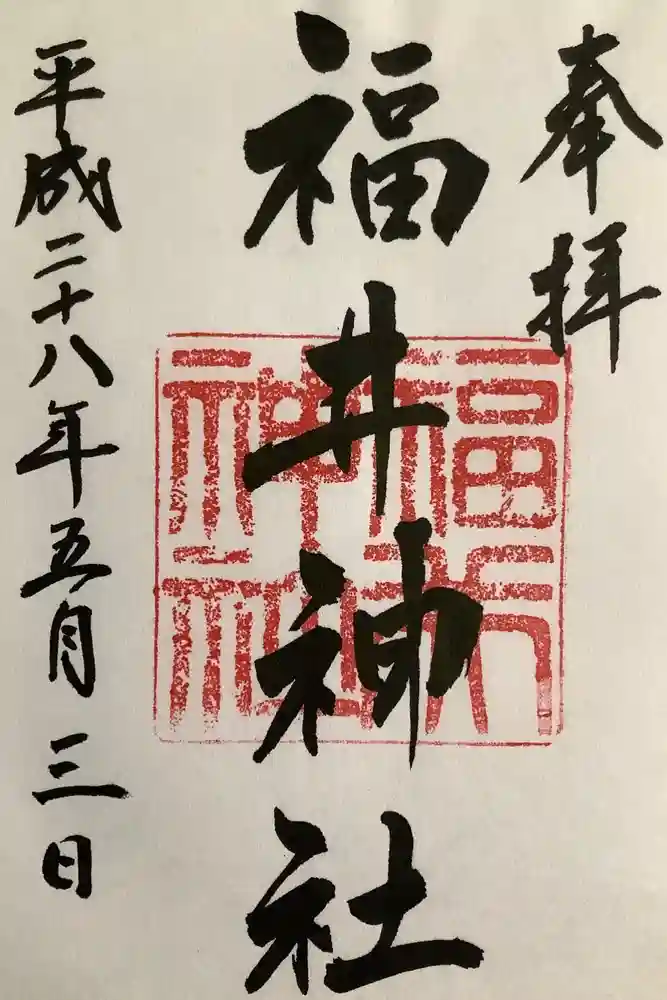 奉拝
福井神社
平成二十八年五月三日